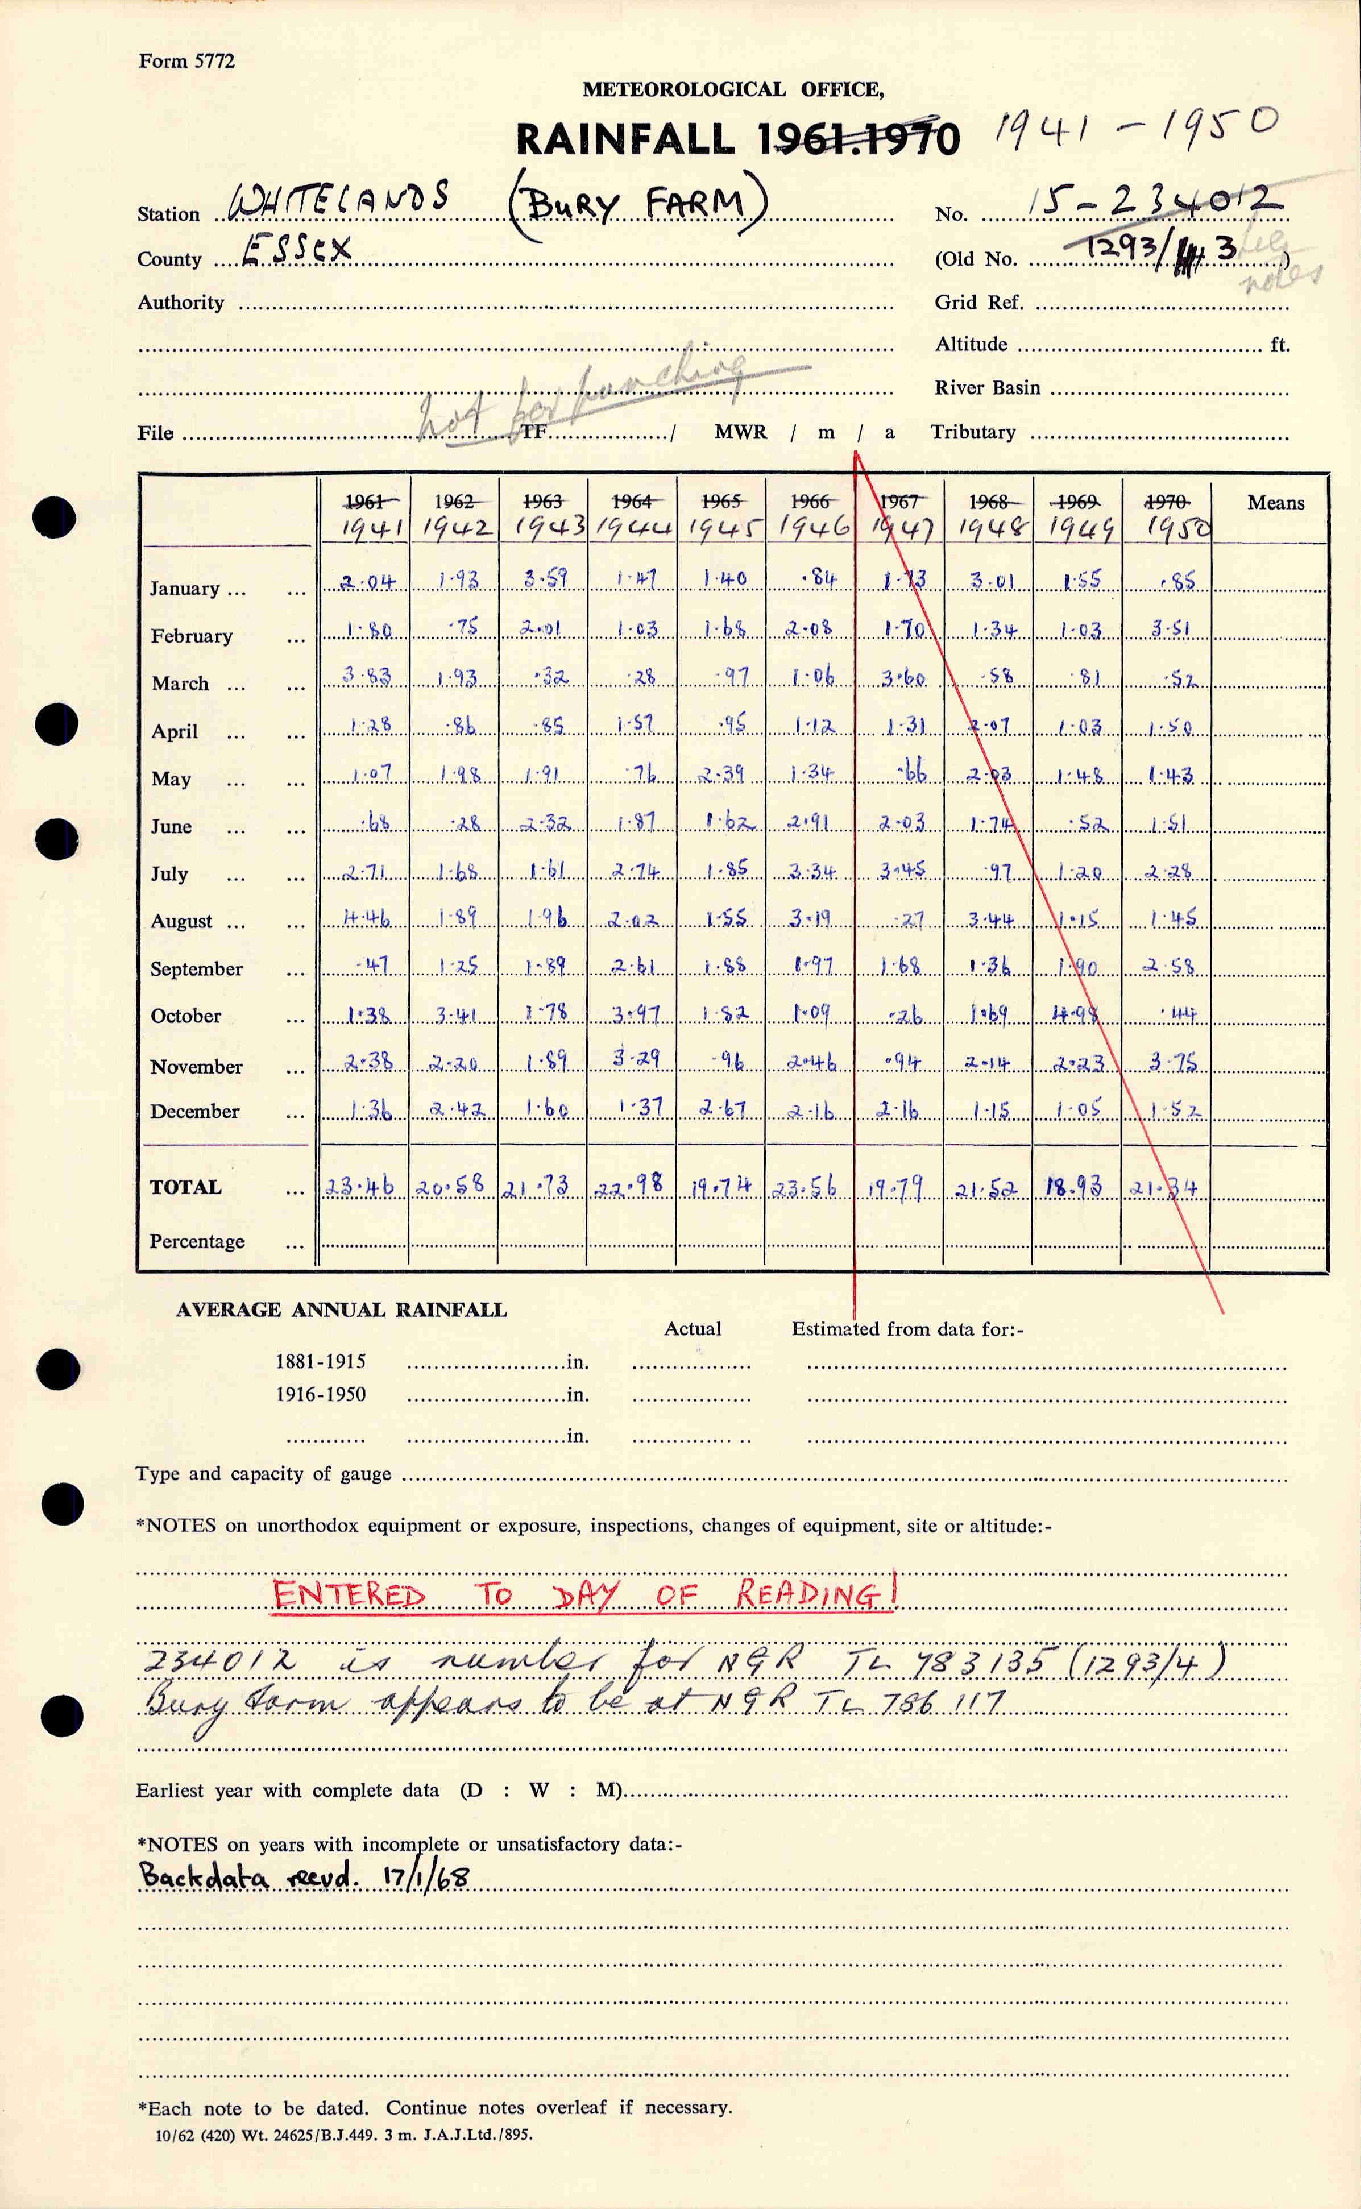 Form 5772
METEOROLOGICAL OFFICE,
RAINFALL 1961.1970 1941 - 1950
Station WHITELANDS (BURY FARM) No. 15-234012
County ESSEX (Old No. 1293/ 3 ) see notes
Authority Grid Ref.
Altitude ft.
River Basin
not for punching
File TF / MWR / m / a Tributary
1961 1962 1963 1964 1965 1966 1967 1968 1969 1970 Means
1941 1942 1943 1944 1945 1946 1947 1948 1949 1950
January ... ... 2.04 1.93 3.59 1.47 1.40 .84 1.73 3.01 1.55 .85
February ... 1.80 .75 2.01 1.03 1.68 2.08 1.70 1.34 1.03 3.51
March ... ... 3.83 1.93 .32 .28 .97 1.06 3.60 .58 .81 .52
April ... ... 1.28 .86 .85 1.57 .95 1.12 1.31 2.07 1.03 1.50
May ... ... 1.07 1.98 1.91 .76 2.39 1.34 .66 2.03 1.48 1.43
June ... ... .68 .28 2.32 1.87 1.62 2.91 2.03 1.74 .52 1.51
July ... ... 2.71 1.68 1.61 2.74 1.85 3.34 3.45 .97 1.20 2.28
August ... ... 4.46 1.89 1.96 2.02 1.55 3.19 .27 3.44 1.15 1.45
September ... .47 1.25 1.89 2.61 1.88 1.97 1.68 1.36 1.90 2.58
October ... 1.38 3.41 1.78 3.97 1.82 1.09 .26 1.69 4.98 .44
November ... 2.38 2.20 1.89 3.29 .96 2.46 .94 2.14 2.23 3.75
December ... 1.36 2.42 1.60 1.37 2.67 2.16 2.16 1.15 1.05 1.52
TOTAL ... 23.46 20.58 21.73 22.98 19.74 23.56 19.79 21.52 18.93 21.34
Percentage ...
AVERAGE ANNUAL RAINFALL
Actual Estimated from data for:-
1881-1915 in.
1916-1950 in.
in.
Type and capacity of gauge
*NOTES on unorthodox equipment or exposure, inspections, changes of equipment, site or altitude:-
ENTERED TO DAY OF READING!
234012 is number for NGR TL 783135 (1293/4)
Bury Farm appears to be at NGR TL 786 117
Earliest year with complete data (D : W : M)
*NOTES on years with incomplete or unsatisfactory data:-
Backdata recvd. 17/1/68
*Each note to be dated. Continue notes overleaf if necessary.
10/62 (420) Wt. 24625/B.J.449. 3 m. J.A.J.Ltd./895.